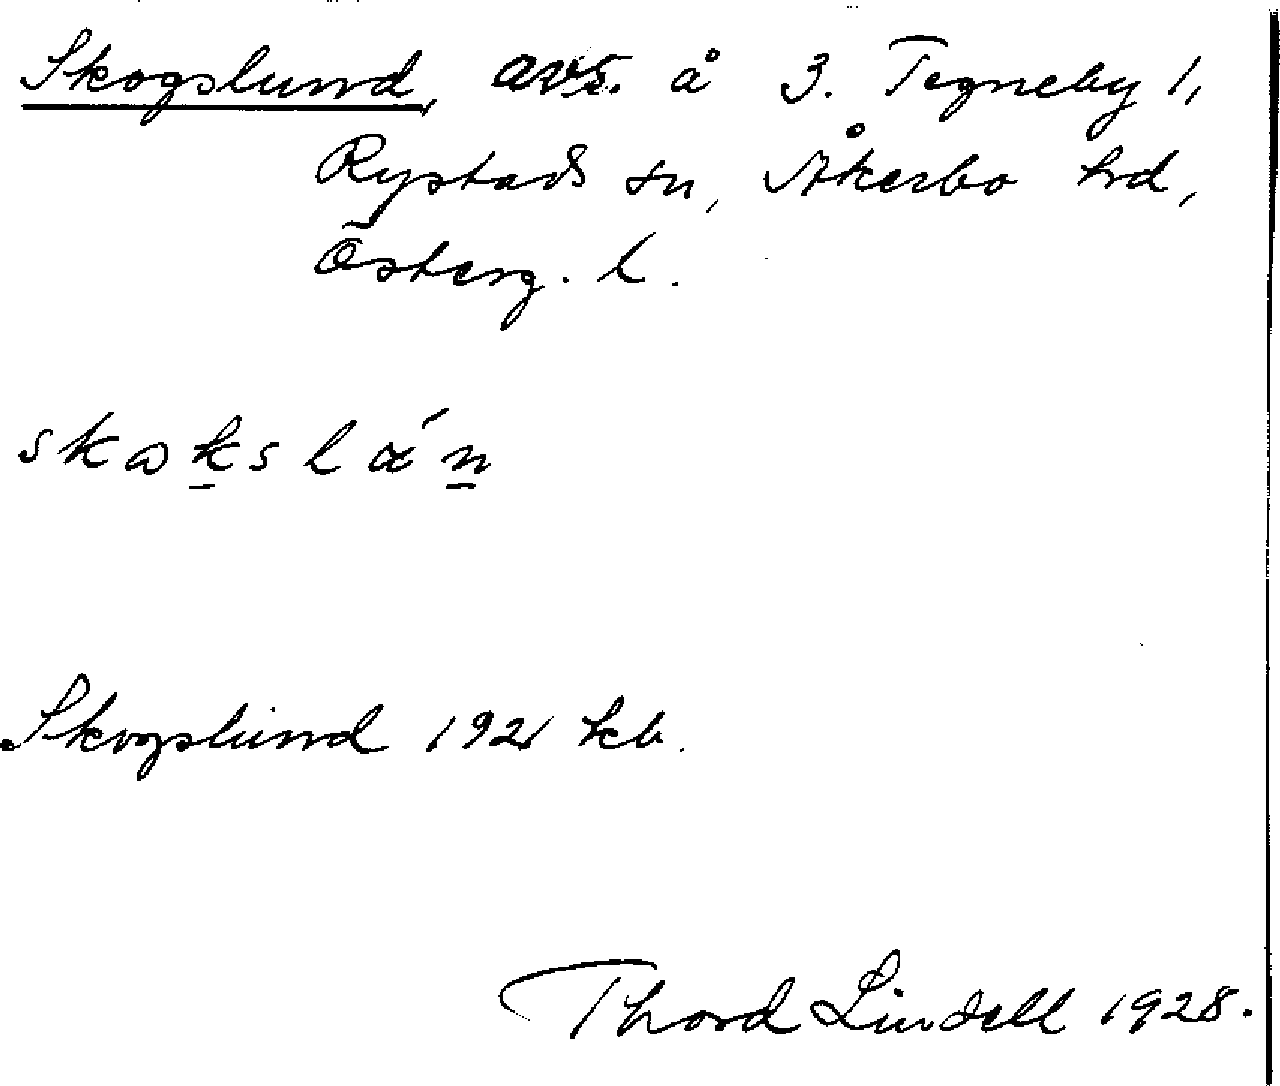 Skogslund, avs. å 3. Tegneby 1,
Rystads sn, Åkerbo hrd,
Österg. l.
skωk̠slα´n̠
Skogslund 1921 kb.
Thord Lindell 1928.